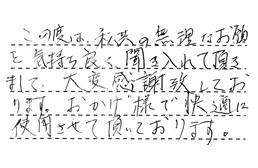 この度は、私共の無理なお願
を気持ち良く聞き入れて頂き
まして、大変感謝致してお
ります。おかげ様で快適に
使用させて頂いております。